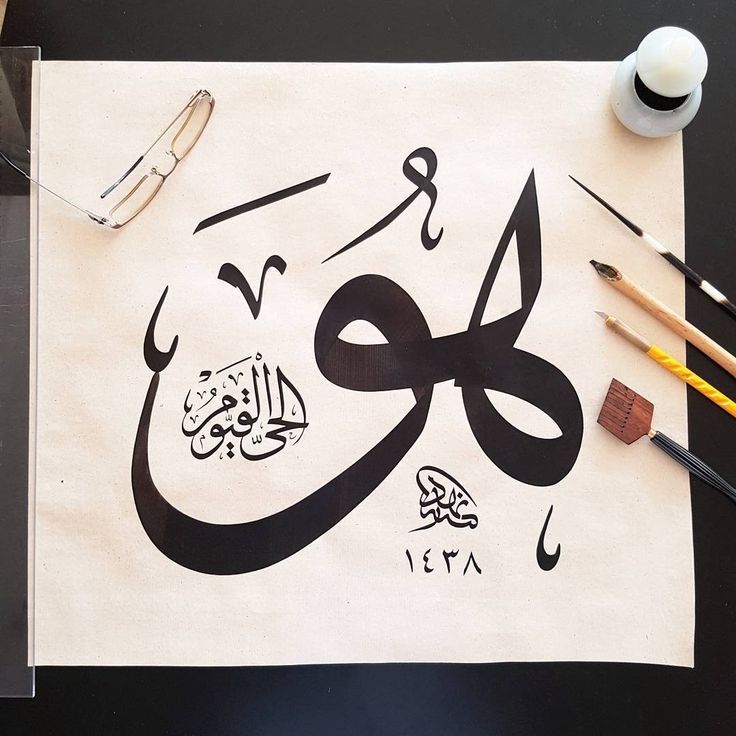 هُوَ
الحيّ القيّوم
١٤٣٨